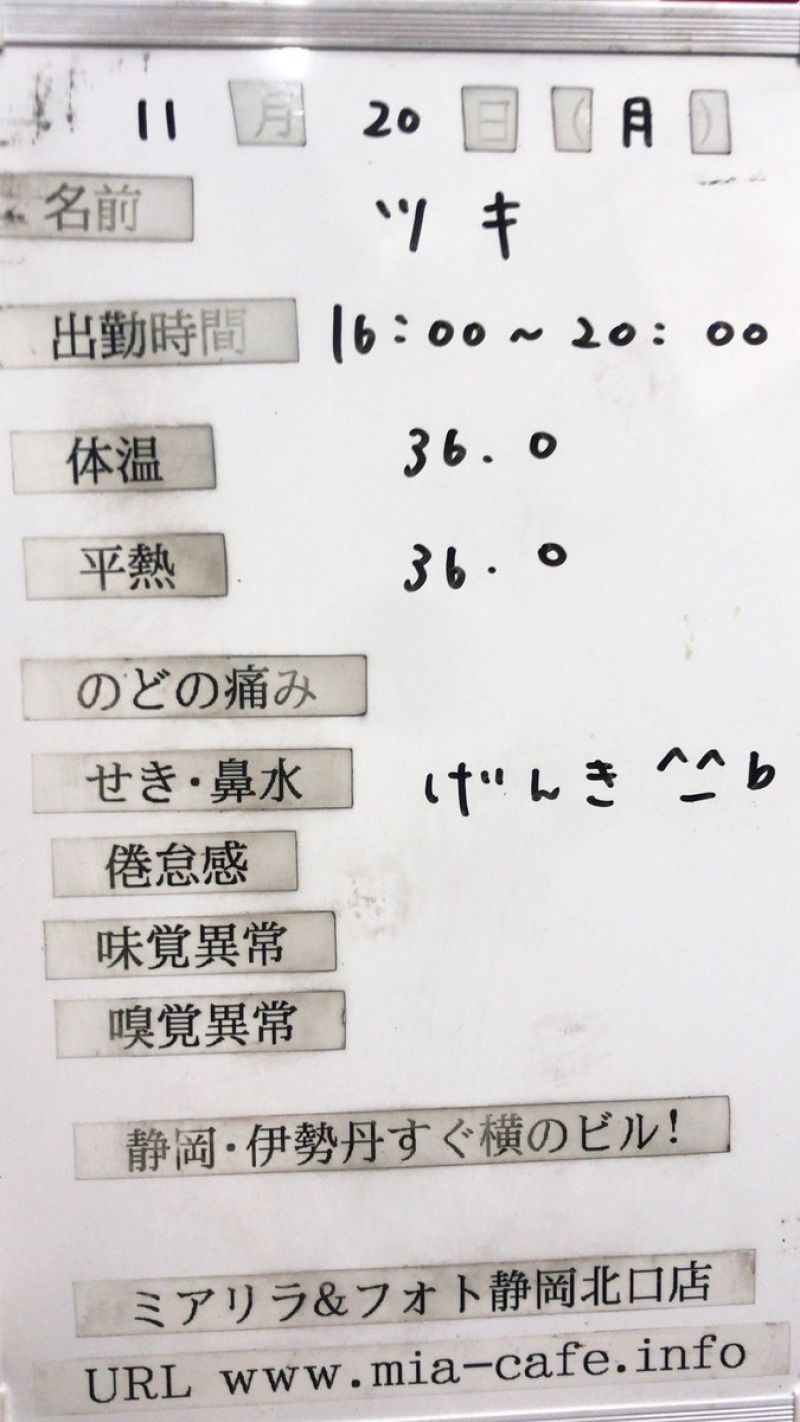 11月20日(月)
名前 ツキ
出勤時間 16:00～20:00
体温 36.0
平熱 36.0
のどの痛み
せき・鼻水 げんき ^_^b
倦怠感
味覚異常
嗅覚異常
静岡・伊勢丹すぐ横のビル!
ミアリラ&フォト静岡北口店
URL www.mia-cafe.info